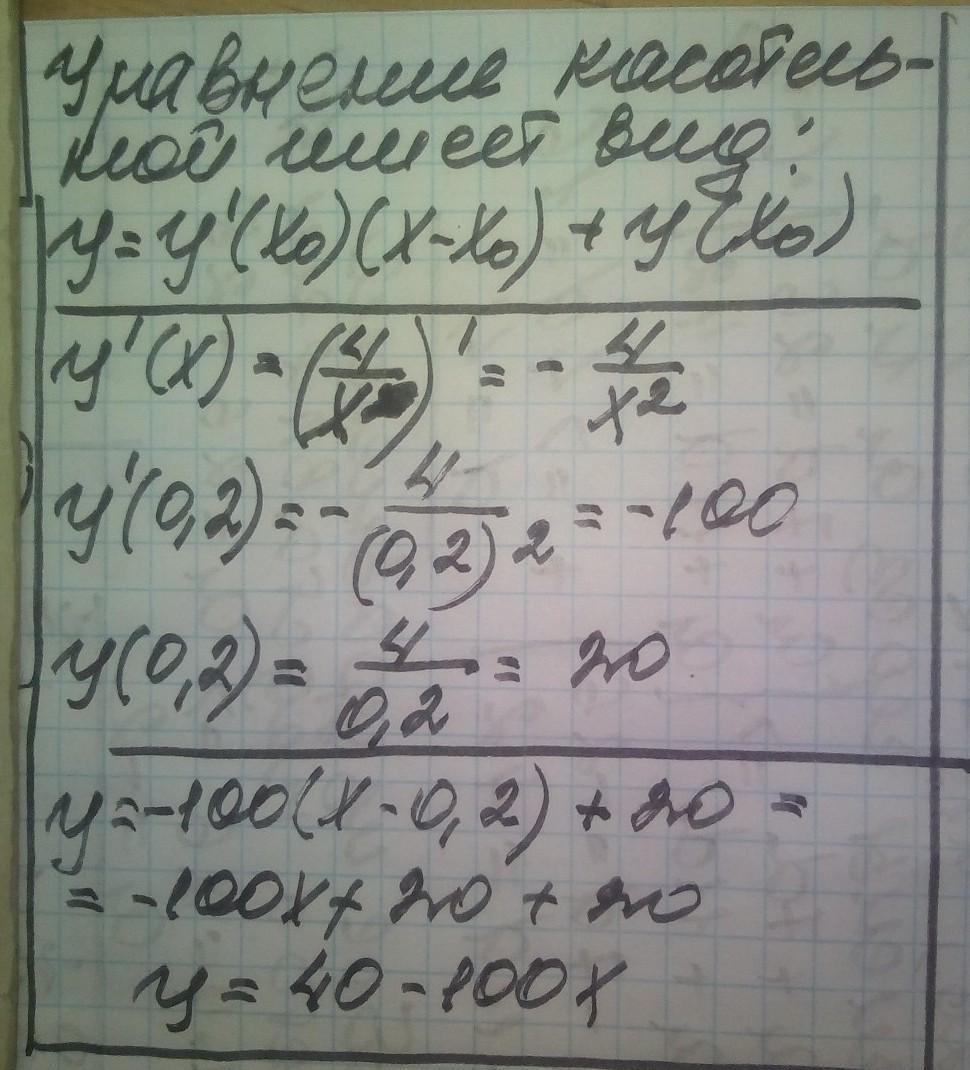 Уравнение касатель-
ной имеет вид:
y = y'(x₀)(x-x₀) + y(x₀)
y'(x) = (4/x)' = - 4/x²
y'(0,2) = - 4/(0,2)² = -100
y(0,2) = 4/0,2 = 20
y = -100(x - 0,2) + 20 =
= -100x + 20 + 20
y = 40 - 100x